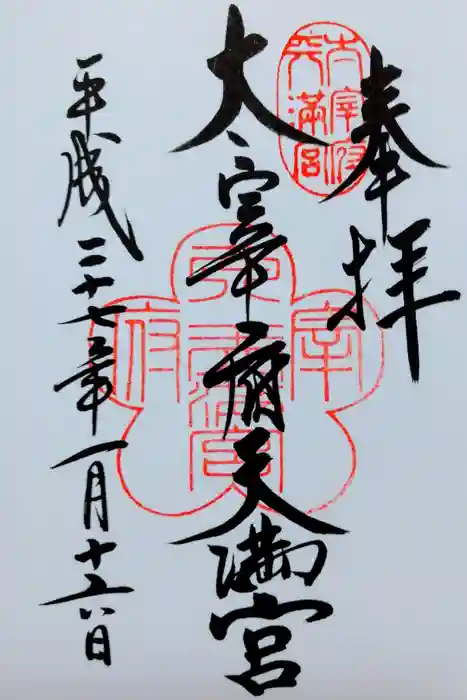 奉拝
太宰府天満宮
平成二十七年一月十六日
太宰府
天満宮
太宰府天満宮